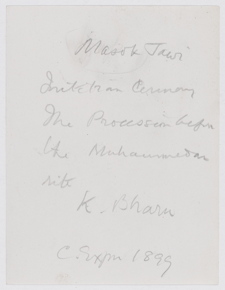 Masok Jawi
Initiation Ceremony
The Procession before
the Muhammedan
rite
K. Bharu
C. Expn 1899